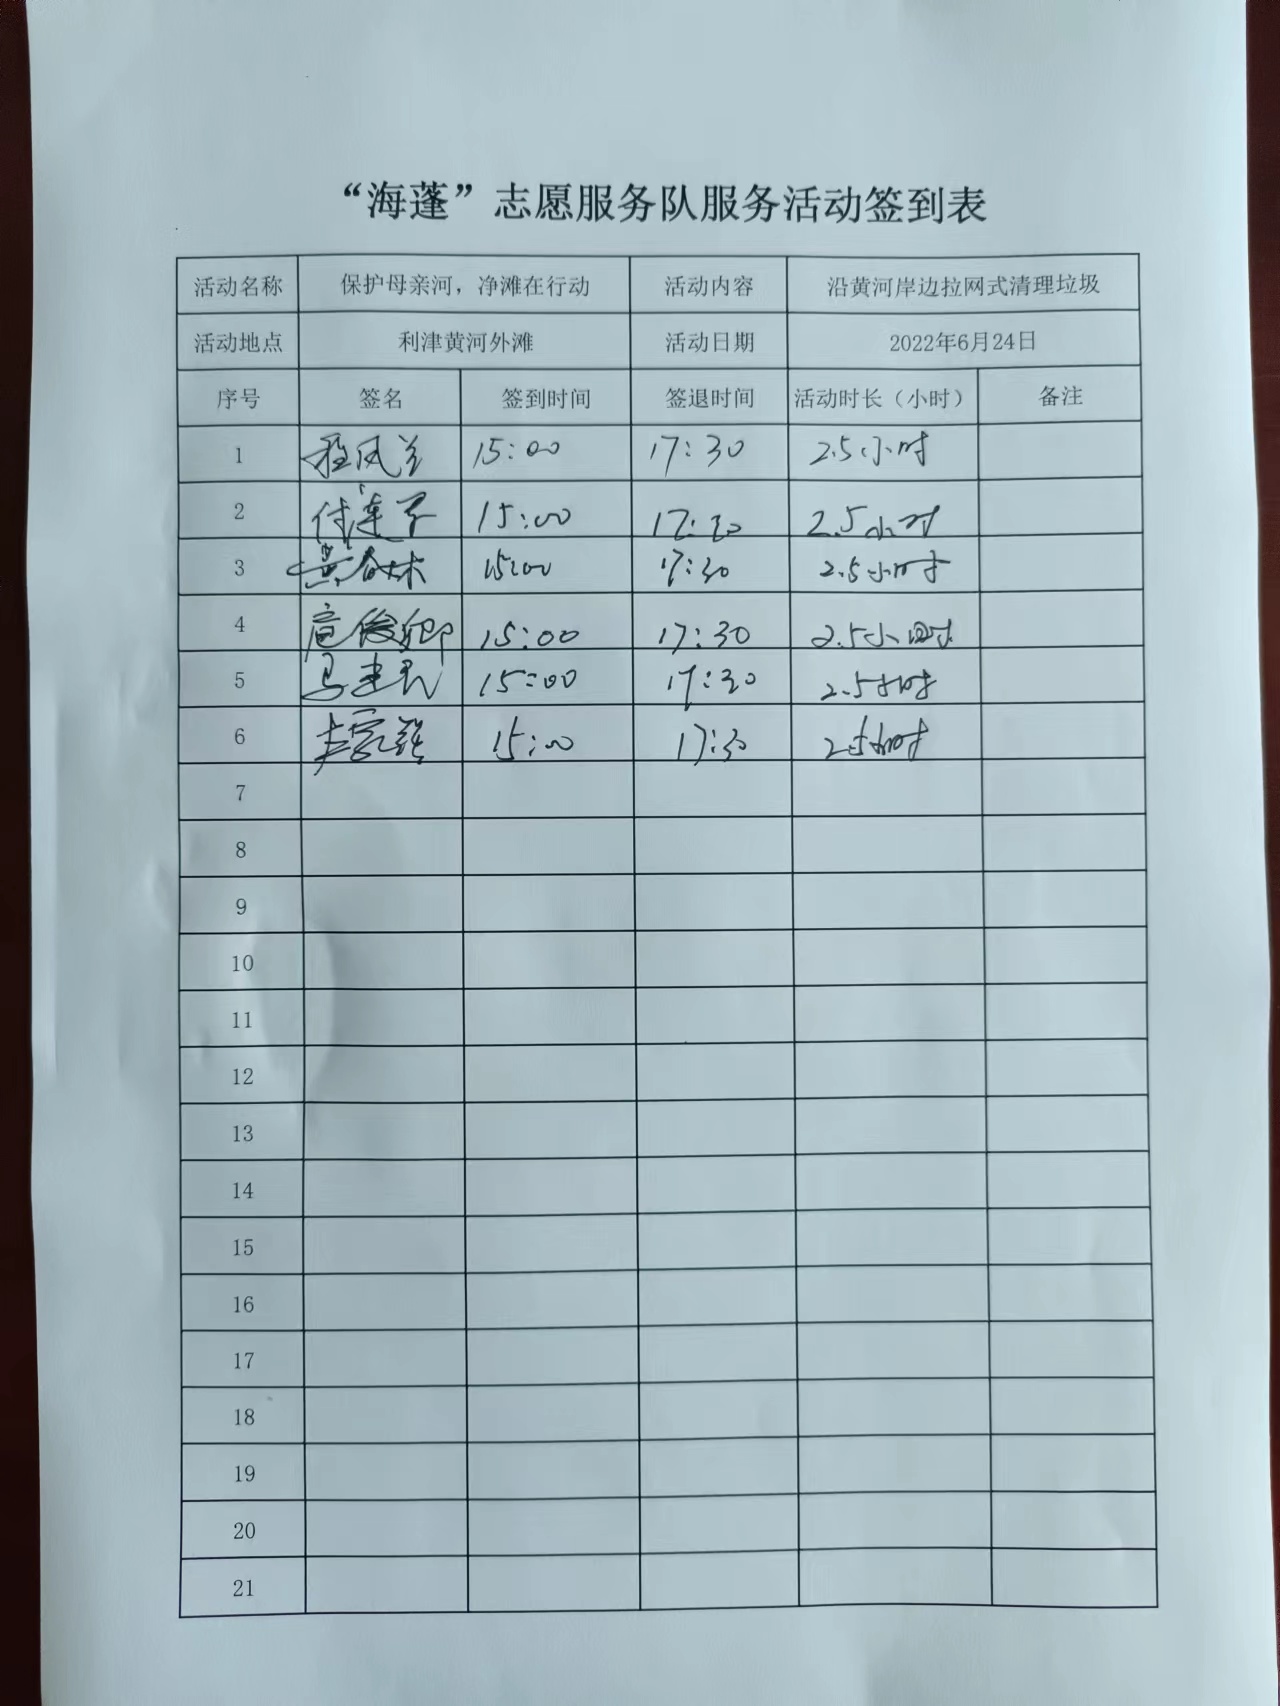 “海蓬”志愿服务队服务活动签到表
活动名称 保护母亲河，净滩在行动 活动内容 沿黄河岸边拉网式清理垃圾
活动地点 利津黄河外滩 活动日期 2022年6月24日
序号 签名 签到时间 签退时间 活动时长（小时） 备注
1 程凤兰 15:00 17:30 2.5小时
2 付莲子 15:00 17:30 2.5小时
3 黄春林 15:00 17:30 2.5小时
4 扈俊卿 15:00 17:30 2.5小时
5 马建民 15:00 17:30 2.5小时
6 15:00 17:30 2.5小时
7
8
9
10
11
12
13
14
15
16
17
18
19
20
21